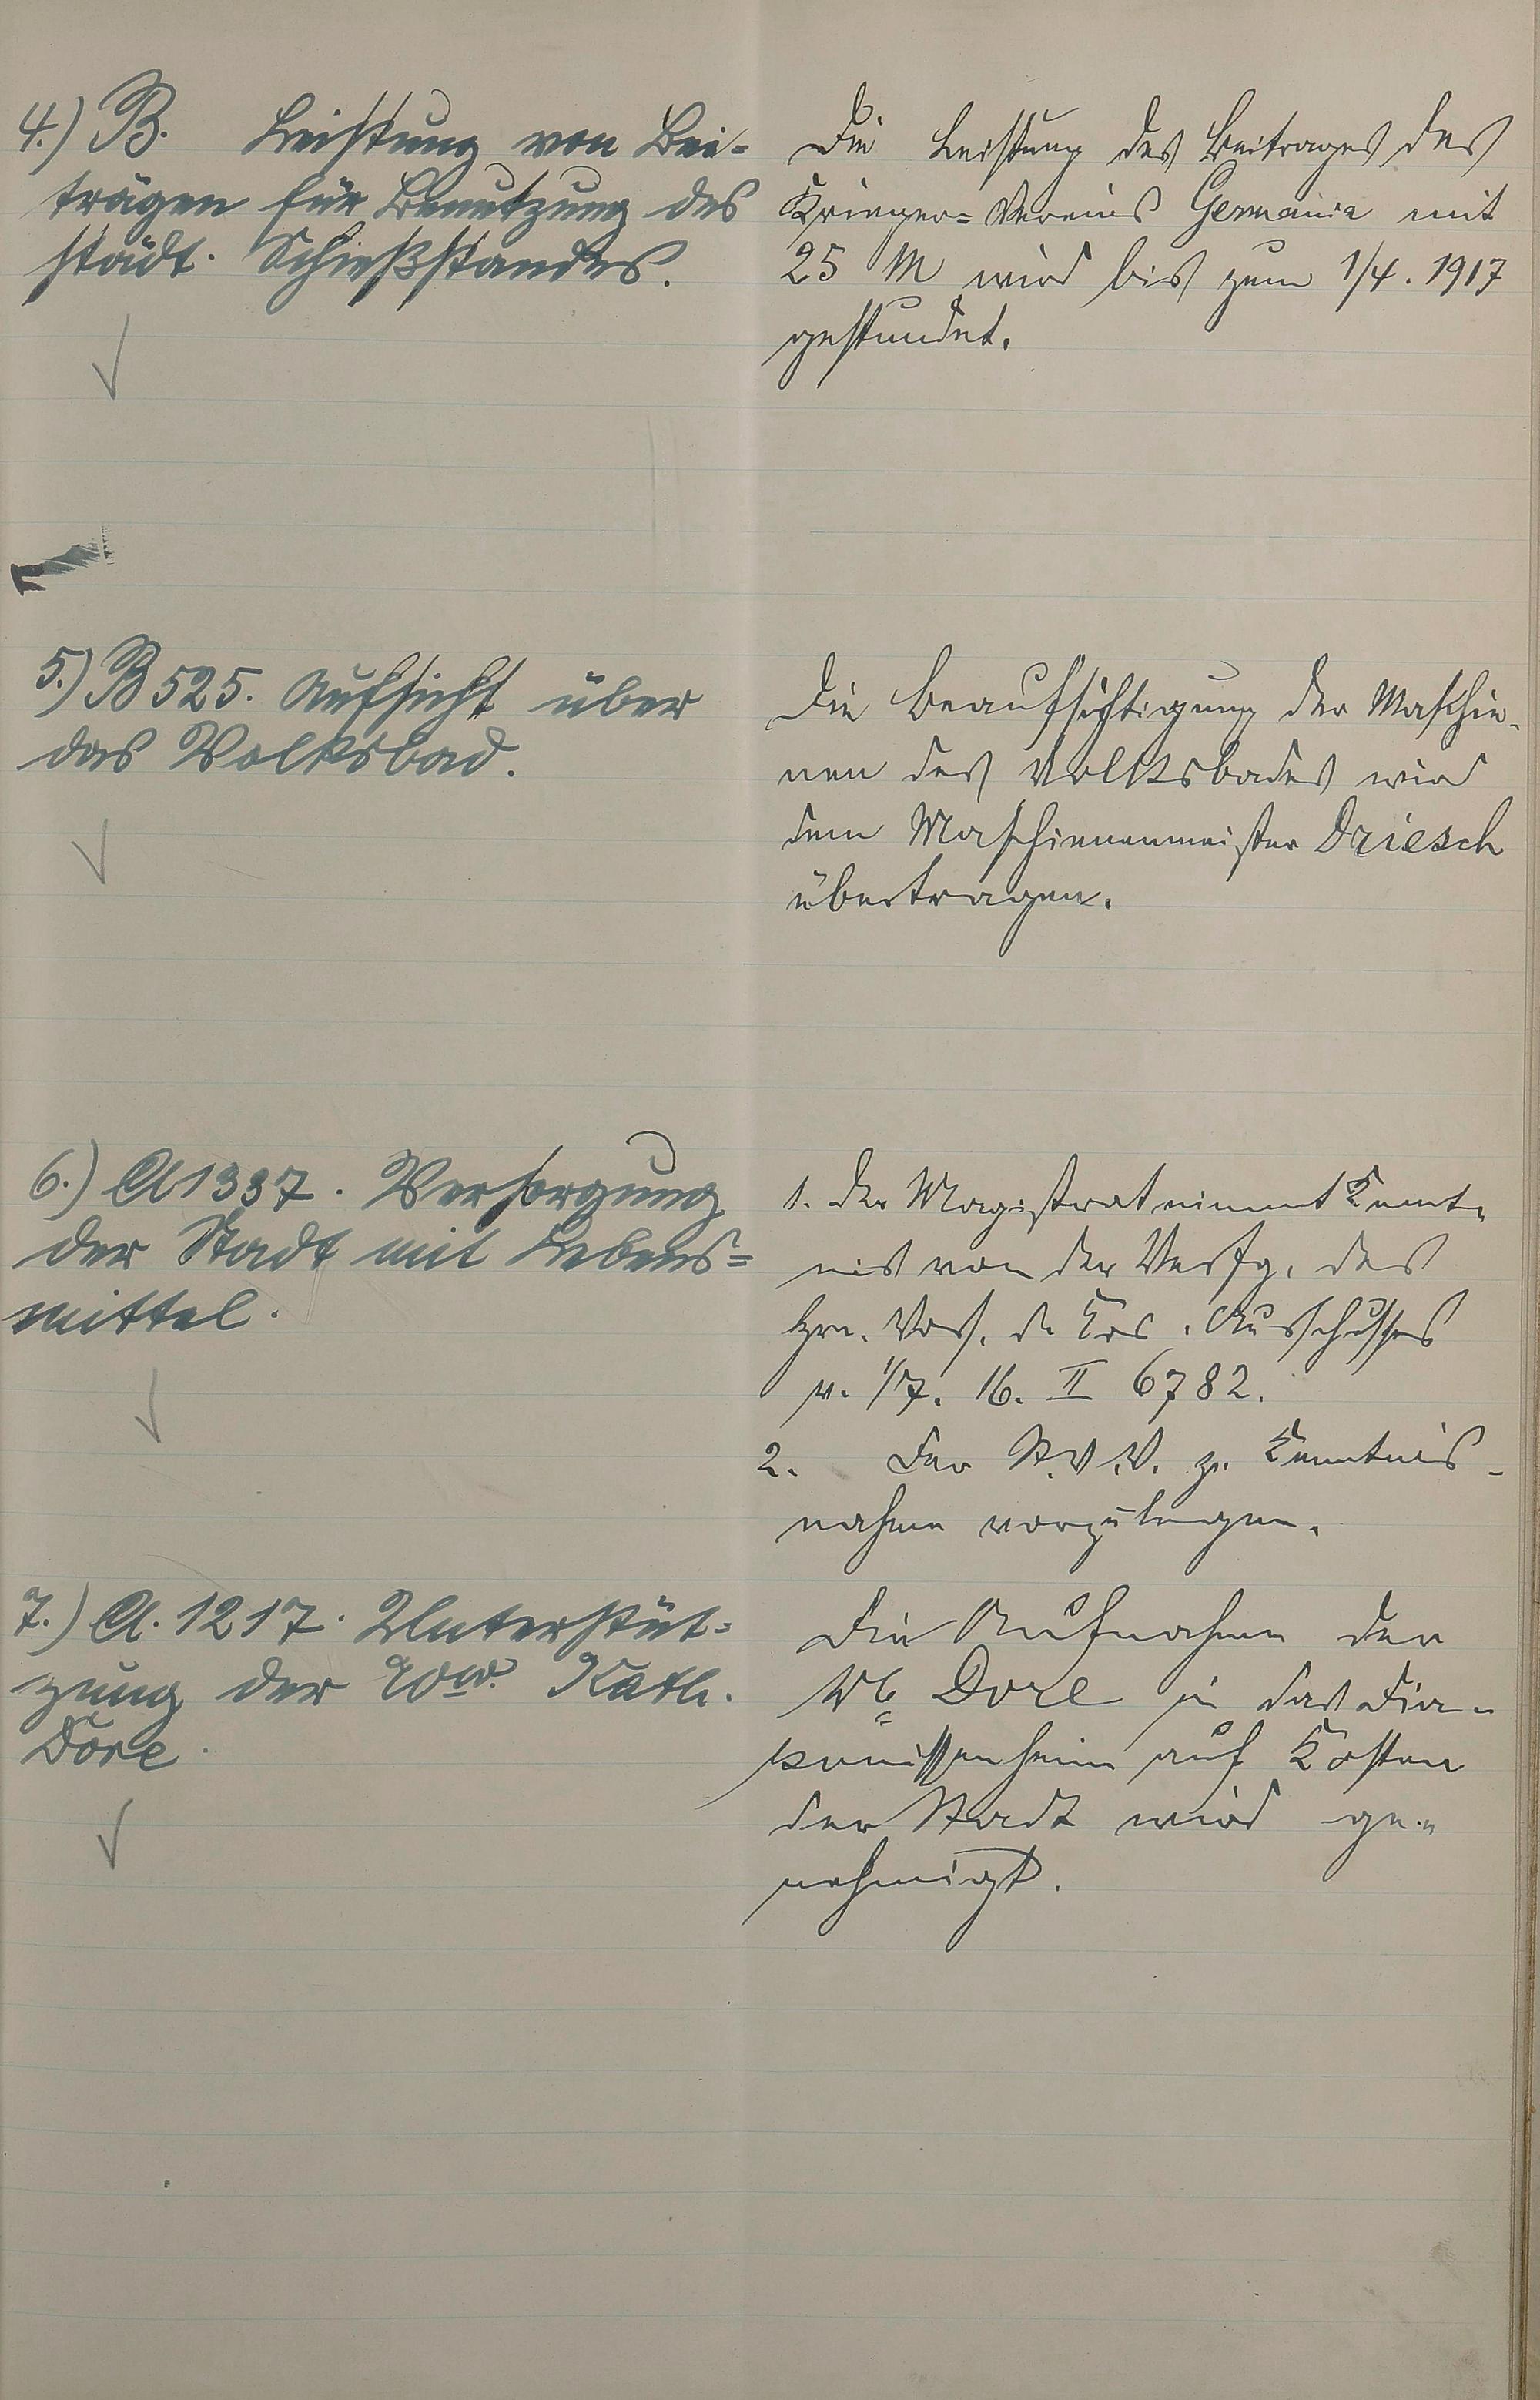 4.) B. Leistung von Bei-
trägen für Benutzung des
städt. Schießstandes.
Die Leistung des Beitrages des
Krieger-Vereins Germania mit
25 M wird bis zum 1/4. 1917
gestundet.
5.) B 525. Aufsicht über
das Volksbad.
Die Beaufsichtigung der Maschie-
nen des Volksbades wird
dem Maschienenmeister Driesch
übertragen.
6.) A 1337. Versorgung
der Stadt mit Lebens-
mittel.
1. Der Magistrat nimmt Kennt-
nis von der Verfg. des
Hrn. Vors. d. Krs. Ausschusses
v. 1/7. 16. II 6782.
2. Der St.V.V. z. Kenntnis-
nahme vorzulegen.
7.) A. 1217. Unterstüt-
zung der Ww. Kath.
Döre.
Die Aufnahme der
Ww. Dore in das Dia-
konissenheim auf Kosten
der Stadt wird ge-
nehmigt.